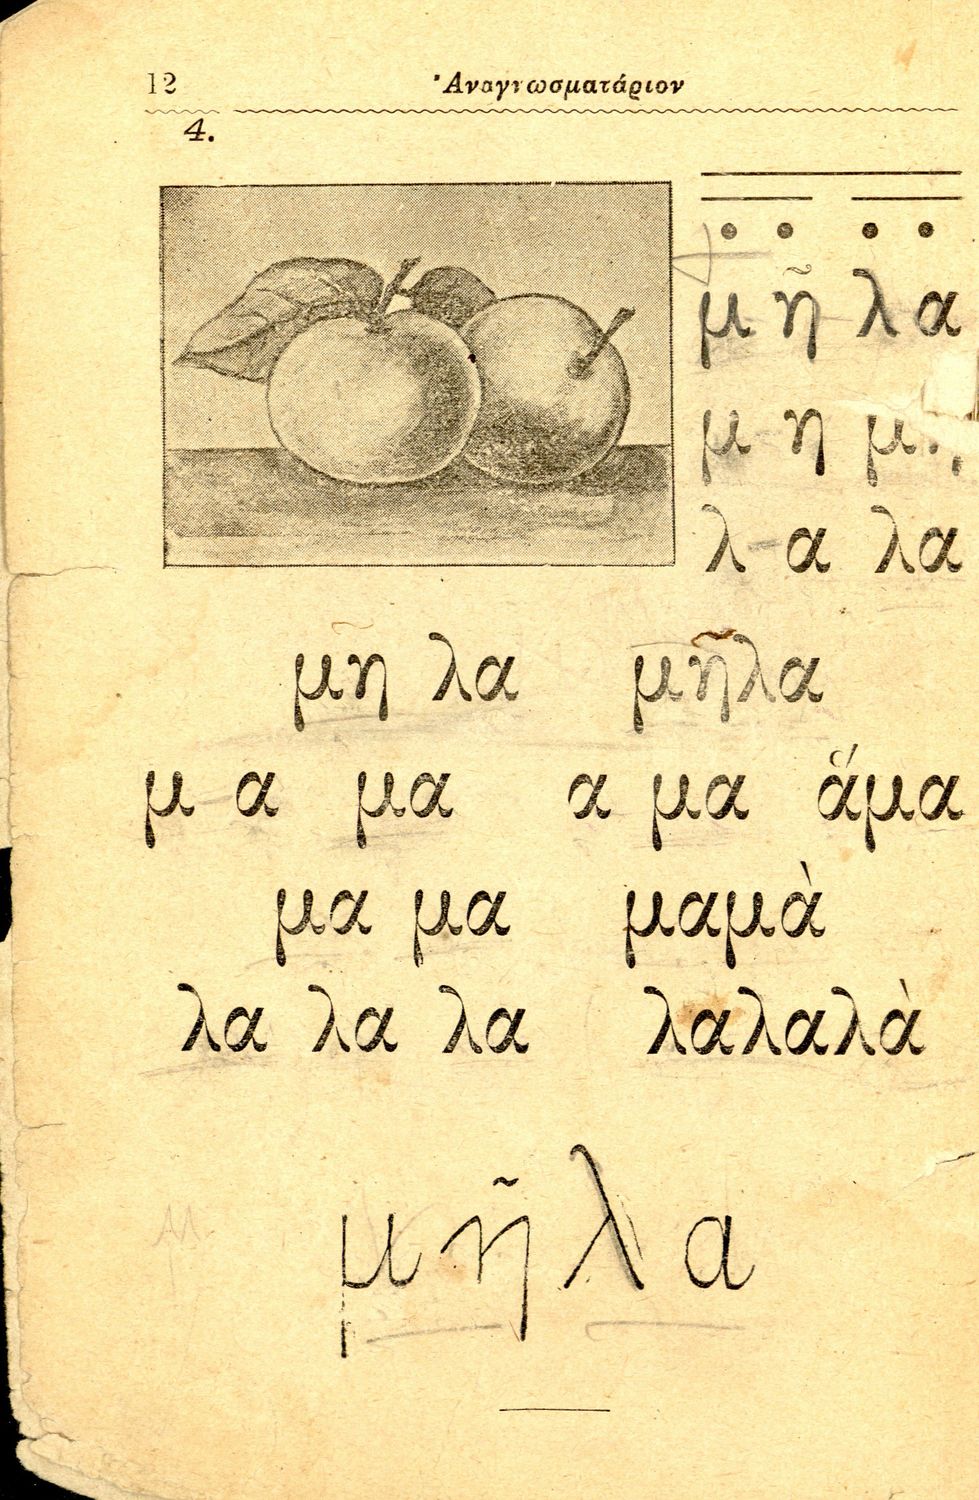 12 Ἀναγνωσματάριον
4.
μ ῆ λ α
μ η
λ α λα
μη λα μῆλα
μ α μα α μα ἅμα
μα μα μαμὰ
λα λα λα λαλαλὰ
μ ῆ λ α